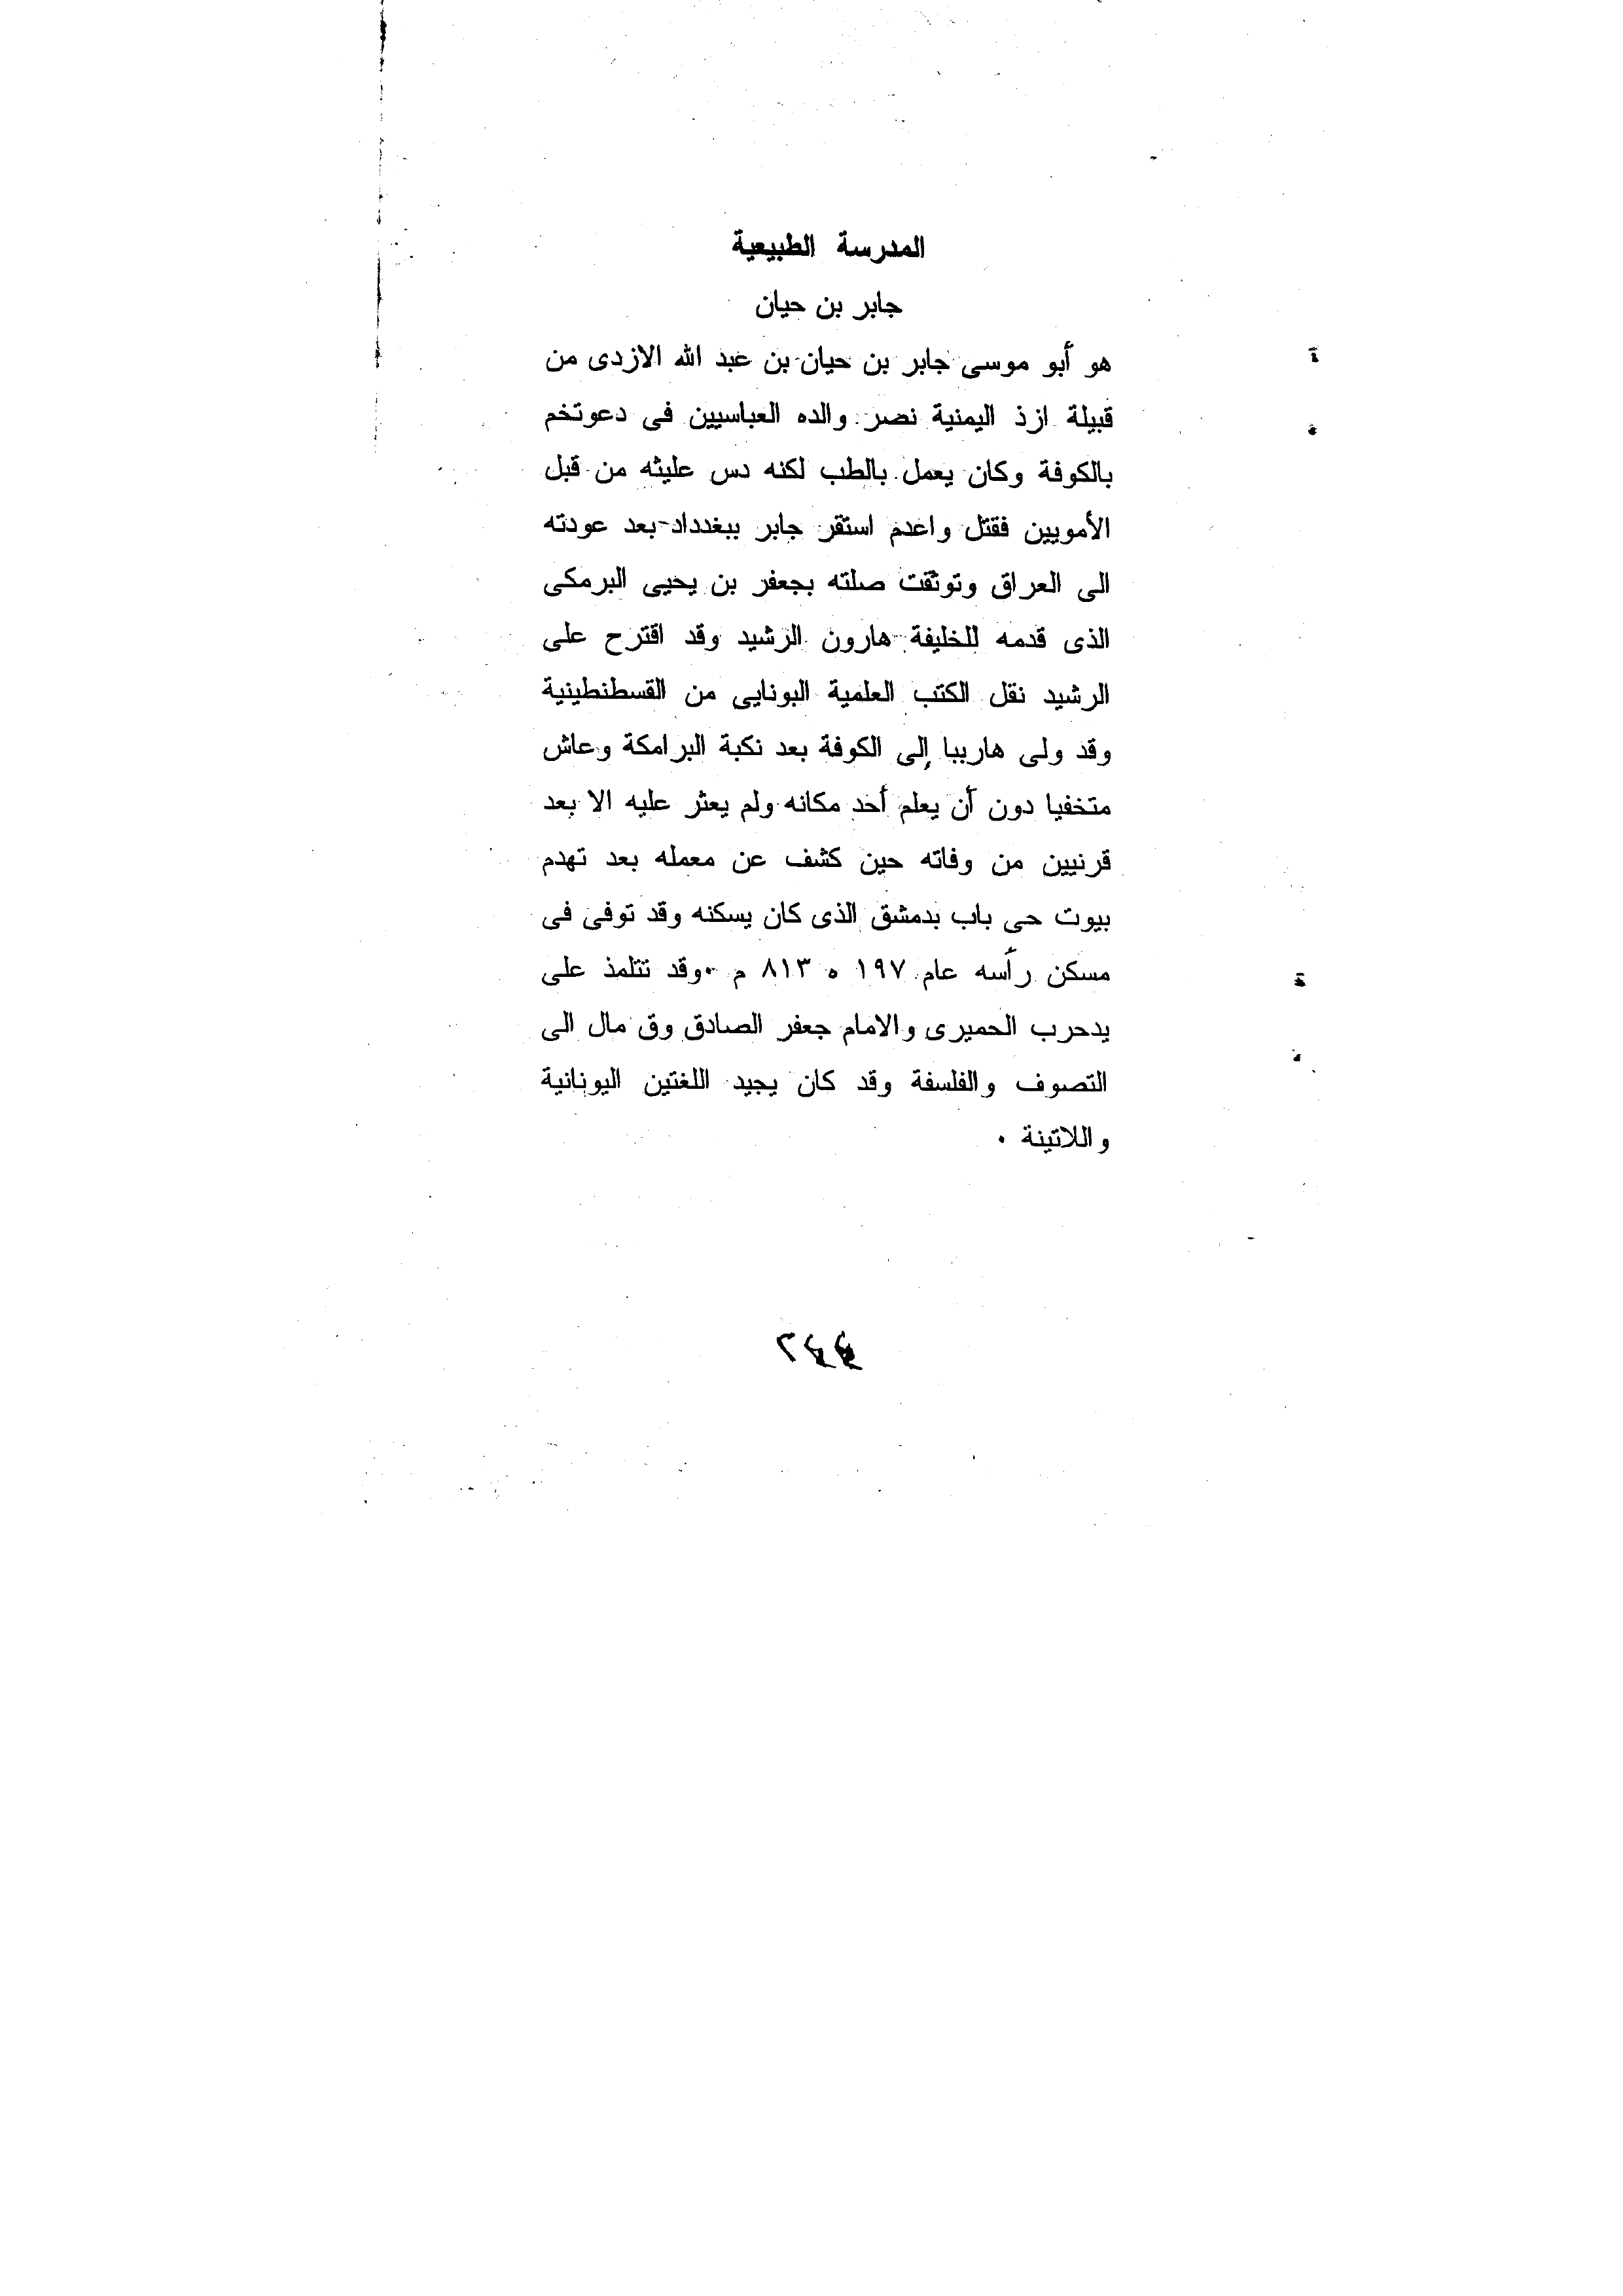 المدرسة الطبيعية
جابر بن حيان
هو أبو موسى جابر بن حيان بن عبد الله الازدى من
قبيلة ازذ اليمنية نصر والده العباسيين فى دعوتخم
بالكوفة وكان يعمل بالطب لكنه دس عليثه من قبل
الأمويين فقتل واعدم استقر جابر ببغدداد بعد عودته
الى العراق وتوثقت صلته بجعفر بن يحيى البرمكى
الذى قدمه للخليفة هارون الرشيد وقد اقترح على
الرشيد نقل الكتب العلمية البونايى من القسطنطينية
وقد ولى هاربيا إلى الكوفة بعد نكبة البرامكة وعاش
متخفيا دون أن يعلم أحد مكانه ولم يعثر عليه الا بعد
قرنيين من وفاته حين كشف عن معمله بعد تهدم
بيوت حى باب بدمشق الذى كان يسكنه وقد توفى فى
مسكن رأسه عام ١٩٧ ه ٨١٣ م ٠وقد تتلمذ على
يدحرب الحميرى والامام جعفر الصادق وق مال الى
التصوف والفلسفة وقد كان يجيد اللغتين اليونانية
واللاتينة ٠